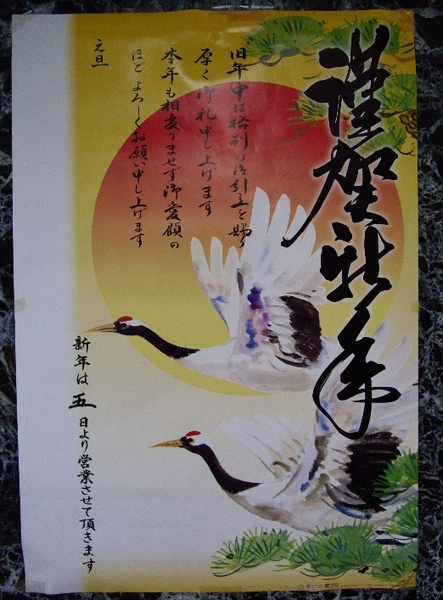 謹賀新年
旧年中は格別の御引立を賜り
厚く御礼申し上げます
本年も相変りませず御愛顧の
ほどよろしくお願い申し上げます
元旦
新年は五日より営業させて頂きます